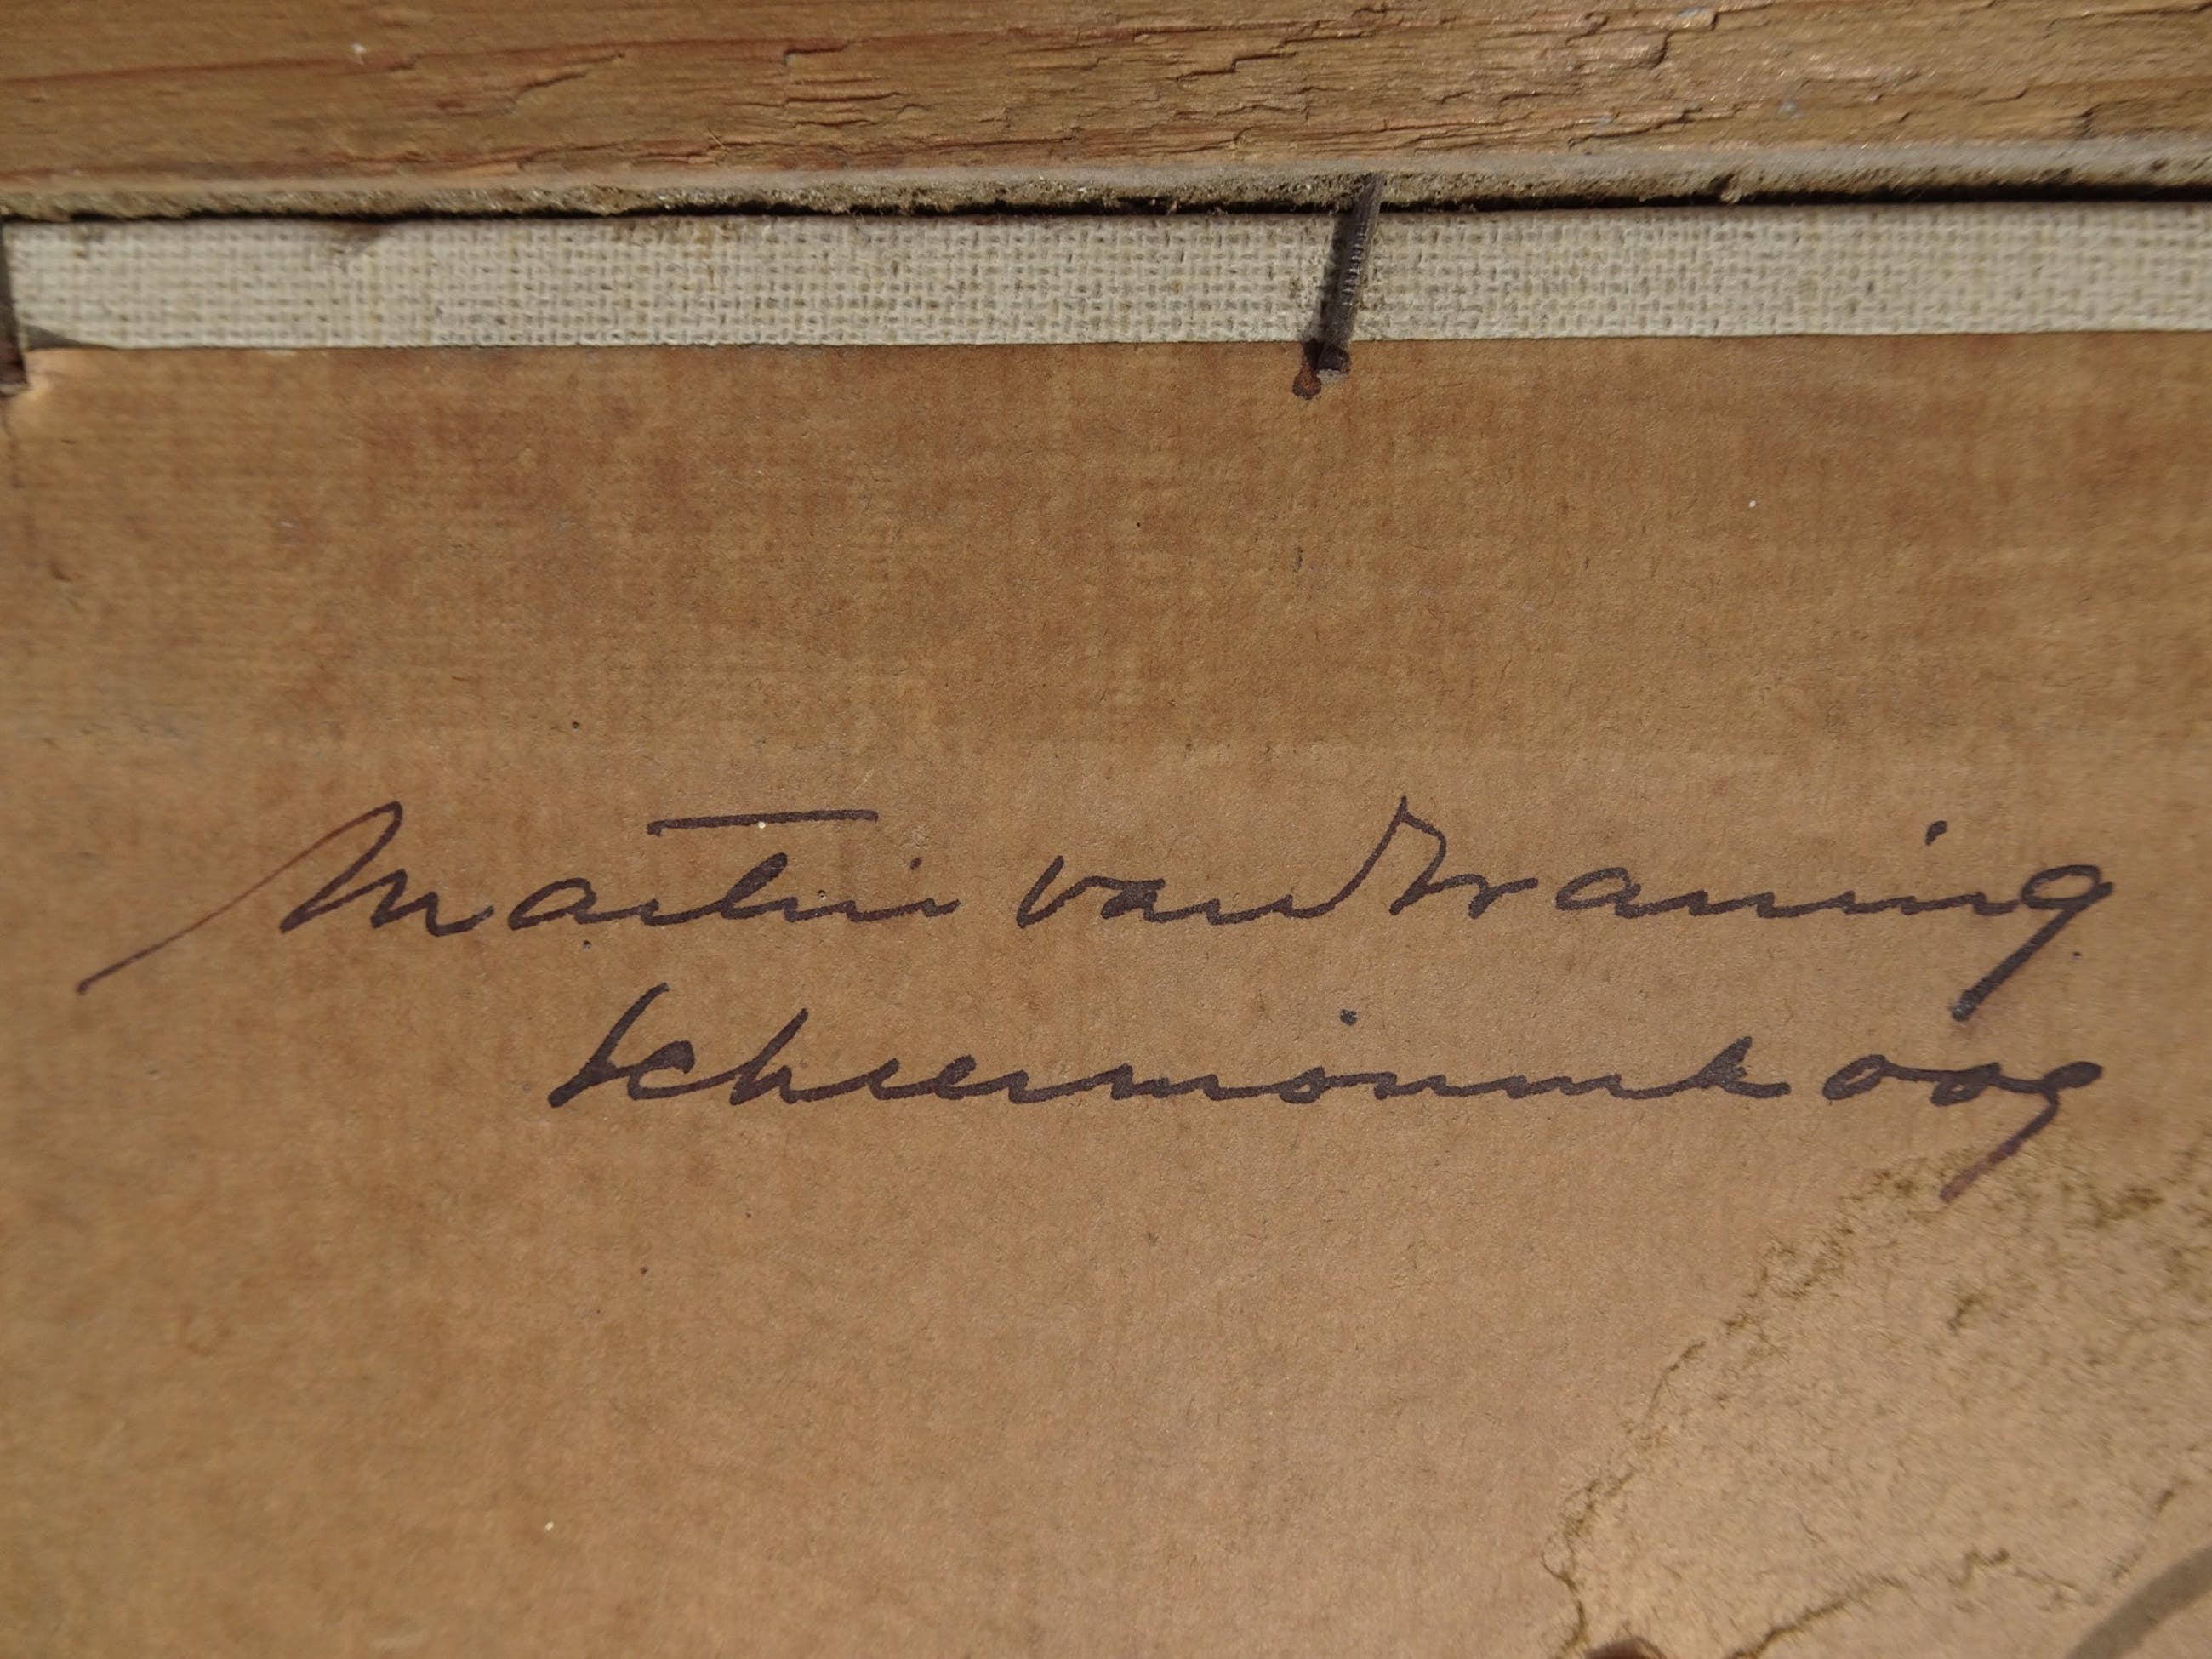 Martin van Waning
Schiermonnikoog